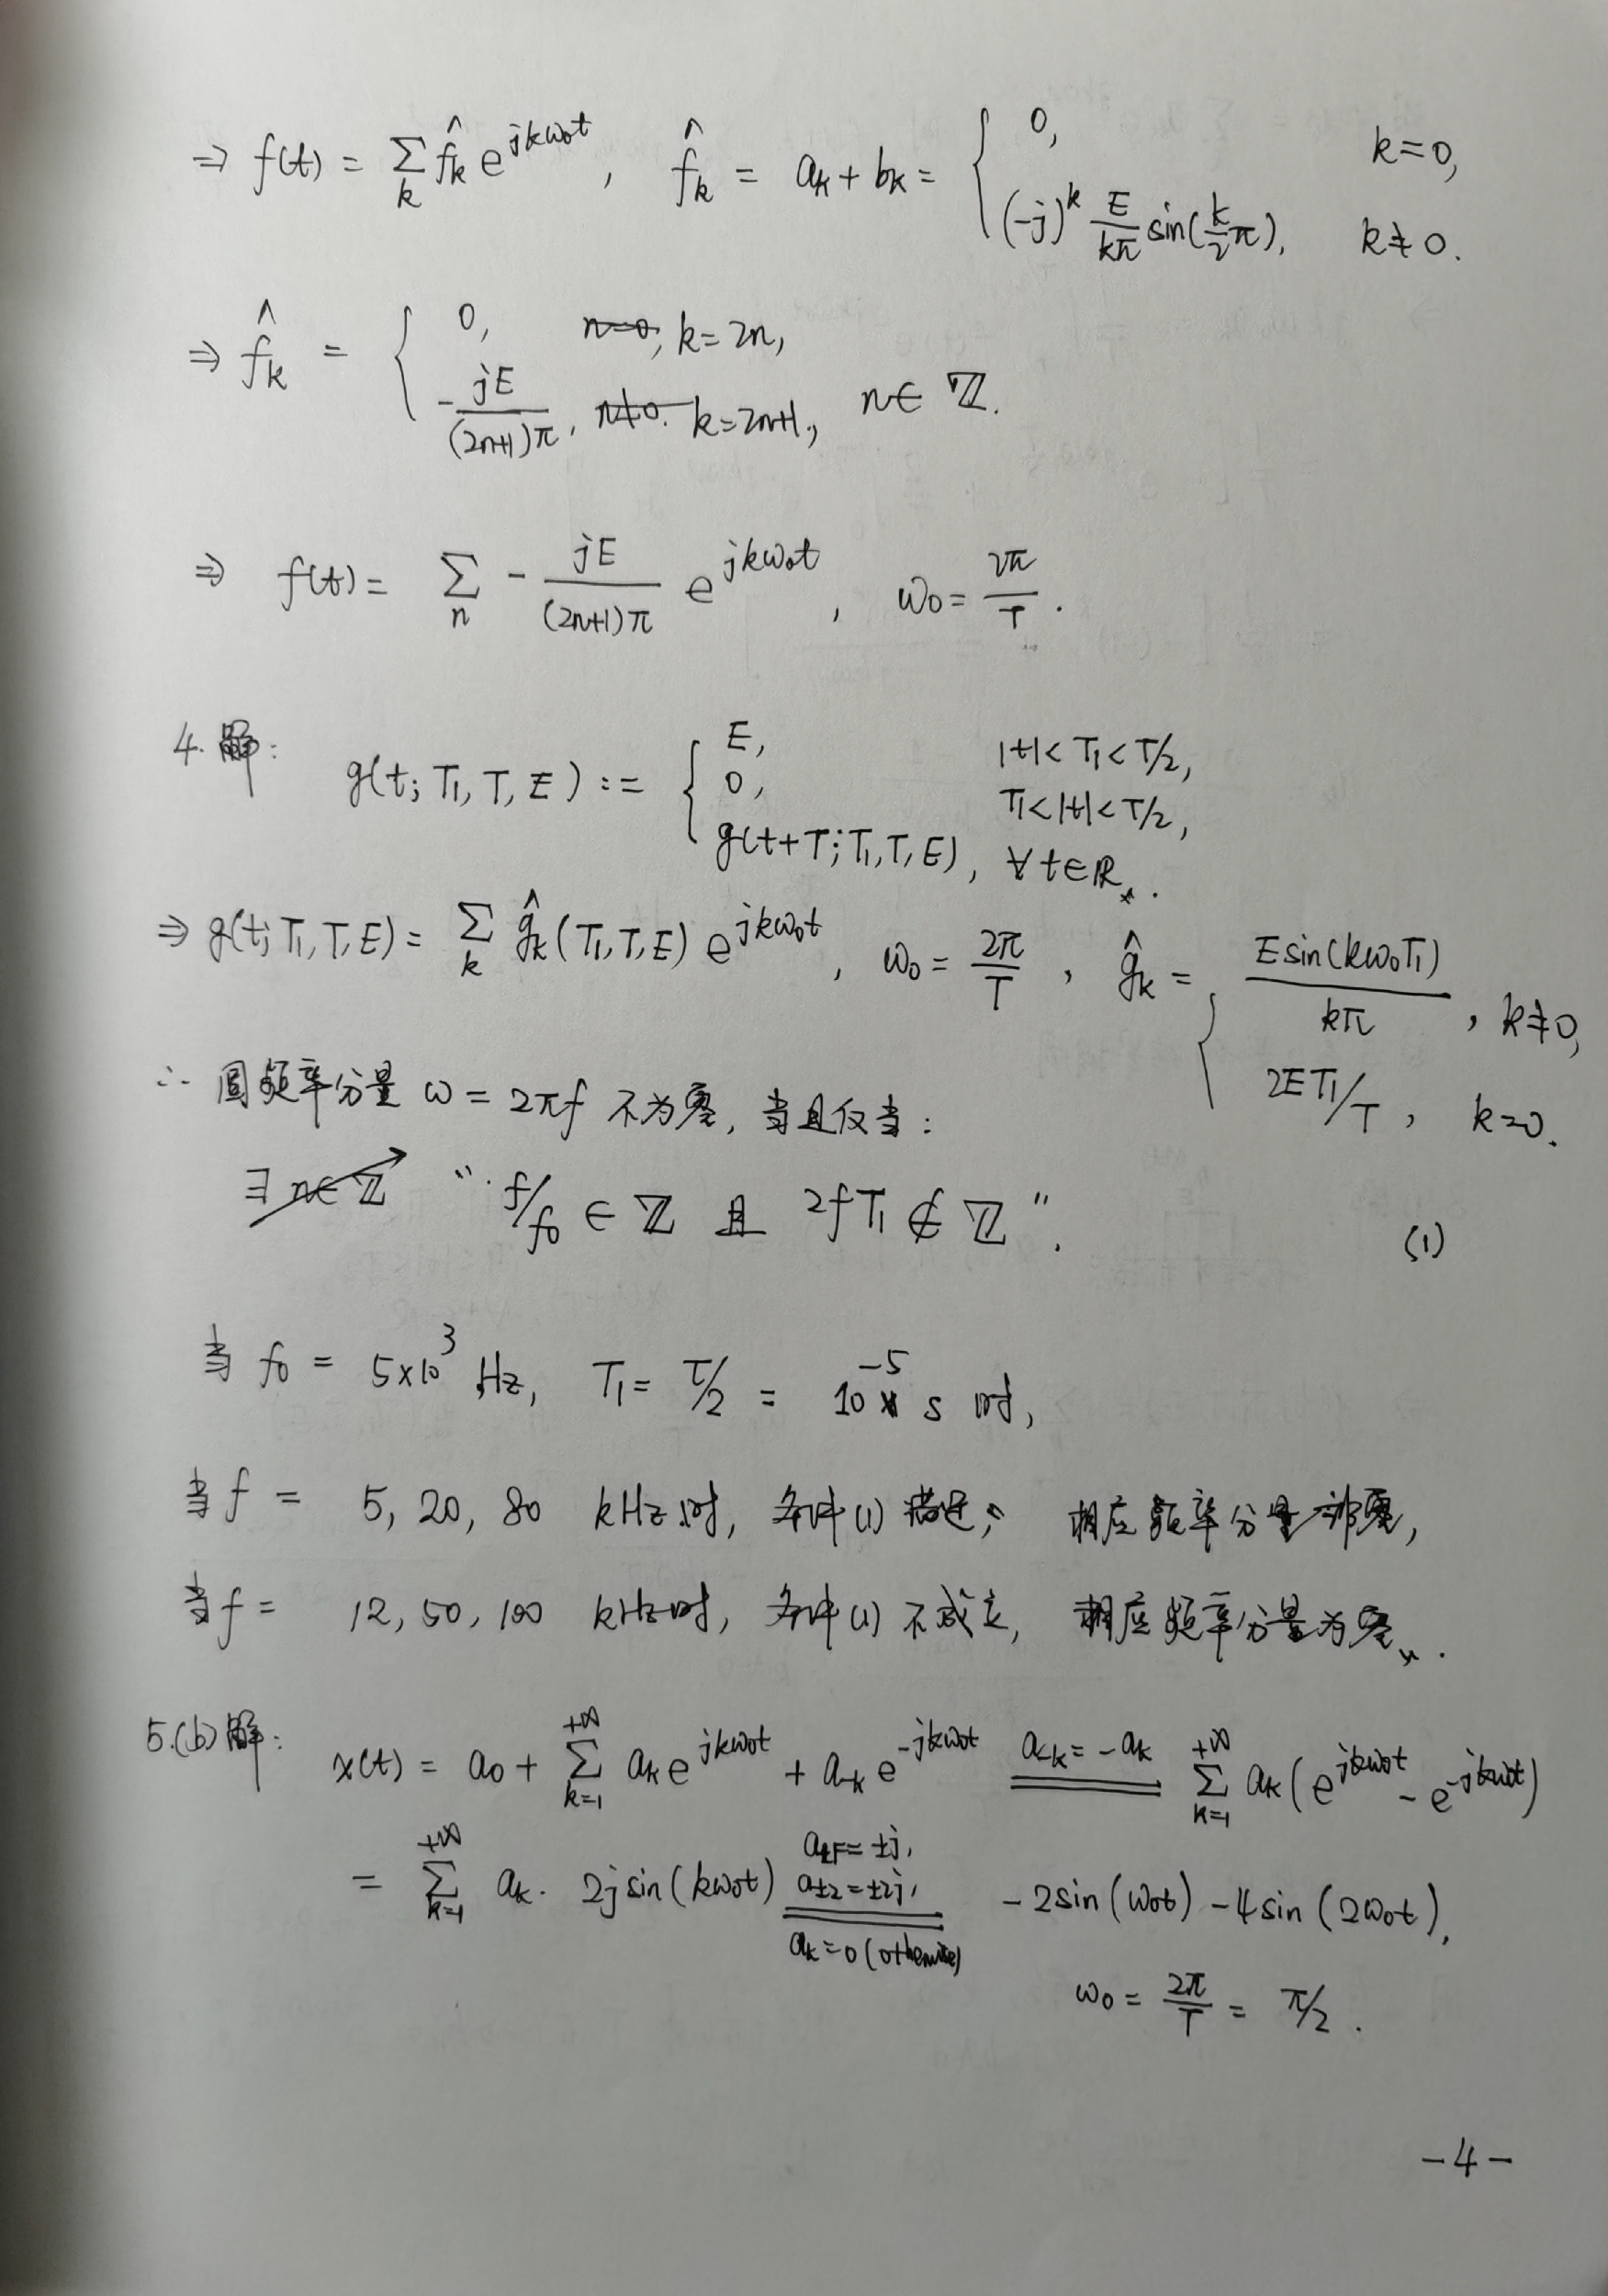 ⇒ f(t) = Σ_k f̂_k e^{jkω₀t} , f̂_k = a_k + b_k = { 0, k=0, (-j)^k E/(kπ) sin(k/2 π), k≠0.
⇒ f̂_k = { 0, k=2n, -jE/((2n+1)π), k=2n+1, n∈ℤ.
⇒ f(t) = Σ_n - jE/((2n+1)π) e^{jkω₀t} , ω₀ = 2π/T .
4. 解: g(t; T₁, T, E) := { E, |t|<T₁<T/2, 0, T₁<|t|<T/2, g(t+T; T₁, T, E), ∀t∈ℝ.
⇒ g(t; T₁, T, E) = Σ_k ĝ_k(T₁, T, E) e^{jkω₀t} , ω₀ = 2π/T , ĝ_k = { E sin(kω₀T₁)/(kπ) , k≠0, 2ET₁/T , k=0.
∴ 圆频率分量 ω = 2πf 不为零, 当且仅当:
" f/f₀ ∈ ℤ 且 2fT₁ ∉ ℤ ". (1)
当 f₀ = 5×10³ Hz, T₁ = τ/2 = 10⁻⁵ s 时,
当 f = 5, 20, 80 kHz 时, 条件(1) 满足, 相应频率分量非零,
当 f = 12, 50, 100 kHz 时, 条件(1) 不成立, 相应频率分量为零.
5.(b) 解: x(t) = a₀ + Σ_{k=1}^{+∞} a_k e^{jkω₀t} + a_{-k} e^{-jkω₀t} ==(a_{-k} = -a_k)== Σ_{k=1}^{+∞} a_k (e^{jkω₀t} - e^{-jkω₀t})
= Σ_{k=1}^{+∞} a_k · 2j sin(kω₀t) ==(a_{±1} = ±j, a_{±2} = ±2j, a_k = 0 (otherwise))== -2sin(ω₀t) - 4sin(2ω₀t),
ω₀ = 2π/T = π/2 .
-4-